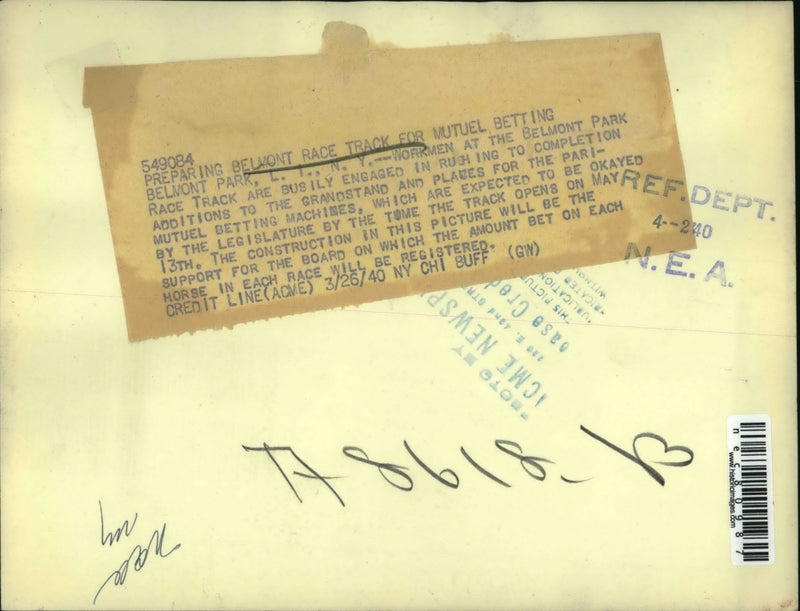 549084
PREPARING BELMONT RACE TRACK FOR MUTUEL BETTING
BELMONT PARK, L. I., N. Y.--WORKMEN AT THE BELMONT PARK
RACE TRACK ARE BUSILY ENGAGED IN RUSHING TO COMPLETION
ADDITIONS TO THE GRANDSTAND AND PLACES FOR THE PARI-
MUTUEL BETTING MACHINES, WHICH ARE EXPECTED TO BE OKAYED
BY THE LEGISLATURE BY THE TIME THE TRACK OPENS ON MAY
13TH. THE CONSTRUCTION IN THIS PICTURE WILL BE THE
SUPPORT FOR THE BOARD ON WHICH THE AMOUNT BET ON EACH
HORSE IN EACH RACE WILL BE REGISTERED.
CREDIT LINE(ACME) 3/26/40 NY CHI BUFF (GW)
REF. DEPT.
4--240
N. E. A.
THIS PICTURE
PUBLICATION
PHOTO BY
ACME NEWSP
78618-B
neC80987
www.historicimages.com